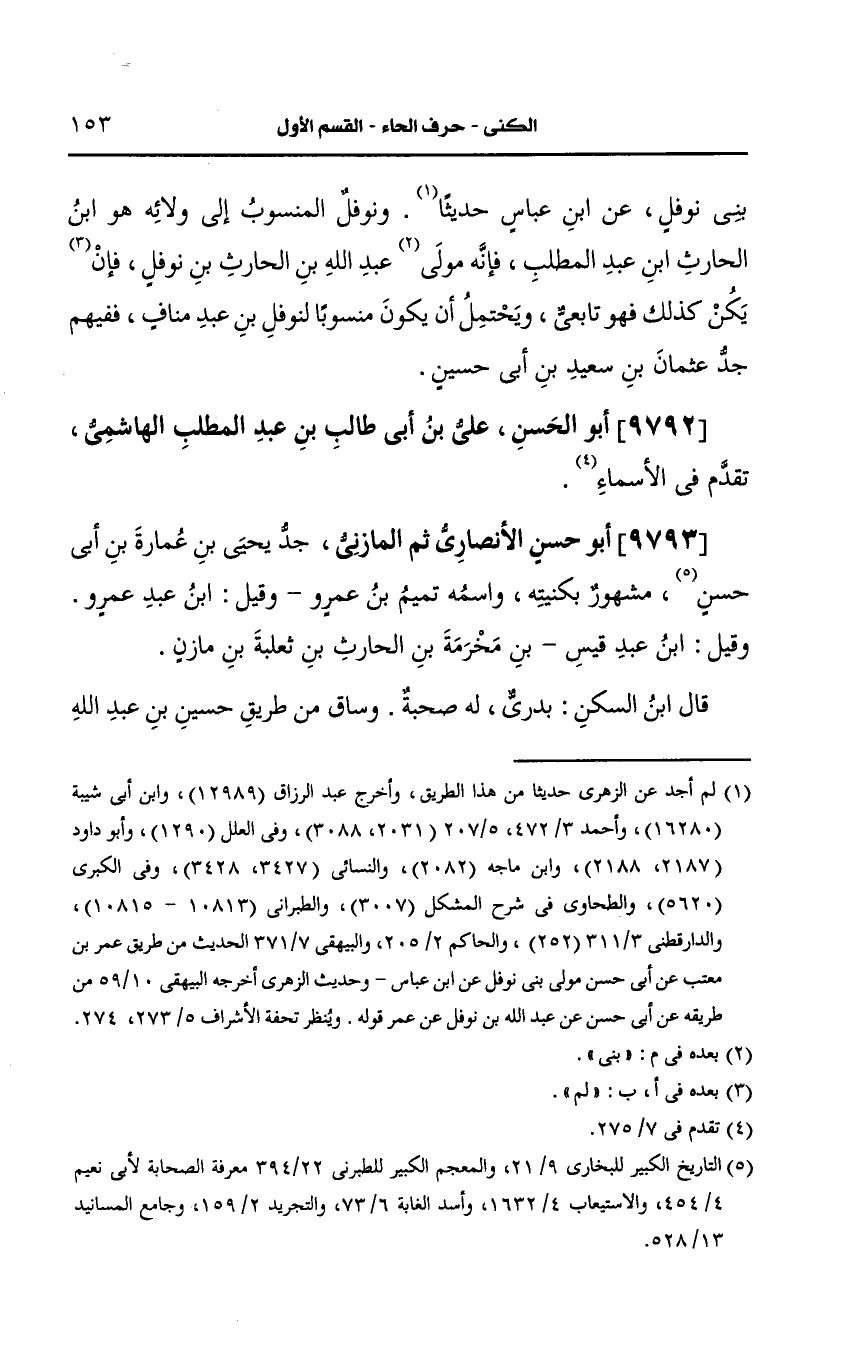 الكنى - حرف الحاء - القسم الأول ١٥٣
بنِى نوفلٍ، عن ابنِ عباسٍ حديثًا(١) . ونوفلٌ المنسوبُ إلى ولائِه هو ابنُ
الحارثِ ابنِ عبدِ المطلبِ ، فإنَّه مولَى(٢) عبدِ اللهِ بنِ الحارثِ بنِ نوفلٍ ، فإنْ(٣)
يَكُنْ كذلك فهو تابعىٌّ ، ويَحْتمِلُ أن يكونَ منسوبًا لنوفلِ بنِ عبدِ منافٍ ، ففيهم
جدُّ عثمانَ بنِ سعيدِ بنِ أبى حسينٍ .
[٩٧٩٢] أبو الحَسنِ ، علىُّ بنُ أبى طالبِ بنِ عبدِ المطلبِ الهاشمِىُّ ،
تقدَّم فى الأسماءِ(٤) .
[٩٧٩٣] أبو حسنٍ الأنصارِىُّ ثم المازنِىُّ ، جدُّ يحيَى بنِ عُمارةَ بنِ أبى
حسنٍ(٥) ، مشهورٌ بكنيتِه ، واسمُه تميمُ بنُ عمرٍو – وقيل : ابنُ عبدِ عمرٍو .
وقيل : ابنُ عبدِ قيسٍ – بنِ مَخْرَمَةَ بنِ الحارثِ بنِ ثعلبةَ بنِ مازنٍ .
قال ابنُ السكنِ : بدرىٌّ ، له صحبةٌ . وساق من طريقِ حسينِ بنِ عبدِ اللهِ
(١) لم أجد عن الزهرى حديثا من هذا الطريق ، وأخرج عبد الرزاق (١٢٩٨٩)، وابن أبى شيبة
(١٦٢٨٠)، وأحمد ٣/ ٤٧٢، ٢٠٧/٥ (٢٠٣١، ٣٠٨٨)، وفى العلل (١٢٩٠)، وأبو داود
(٢١٨٧، ٢١٨٨)، وابن ماجه (٢٠٨٢)، والنسائى (٣٤٢٧، ٣٤٢٨)، وفى الكبرى
(٥٦٢٠)، والطحاوى فى شرح المشكل (٣٠٠٧)، والطبرانى (١٠٨١٣ – ١٠٨١٥)،
والدارقطنى ٣١١/٣ (٢٥٢) ، والحاكم ٢/ ٢٠٥، والبيهقى ٣٧١/٧ الحديث من طريق عمر بن
معتب عن أبى حسن مولى بنى نوفل عن ابن عباس – وحديث الزهرى أخرجه البيهقى ٥٩/١٠ من
طريقه عن أبى حسن عن عبد الله بن نوفل عن عمر قوله . ويُنظر تحفة الأشراف ٥/ ٢٧٣، ٢٧٤.
(٢) بعده فى م : «بنى» .
(٣) بعده فى أ ، ب : «لم» .
(٤) تقدم فى ٧/ ٢٧٥.
(٥) التاريخ الكبير للبخارى ٩/ ٢١، والمعجم الكبير للطبرنى ٣٩٤/٢٢ معرفة الصحابة لأبى نعيم
٤/ ٤٥٤، والاستيعاب ٤/ ١٦٣٢، وأسد الغابة ٦/ ٧٣، والتجريد ٢/ ١٥٩، وجامع المسانيد
١٣/ ٥٢٨.